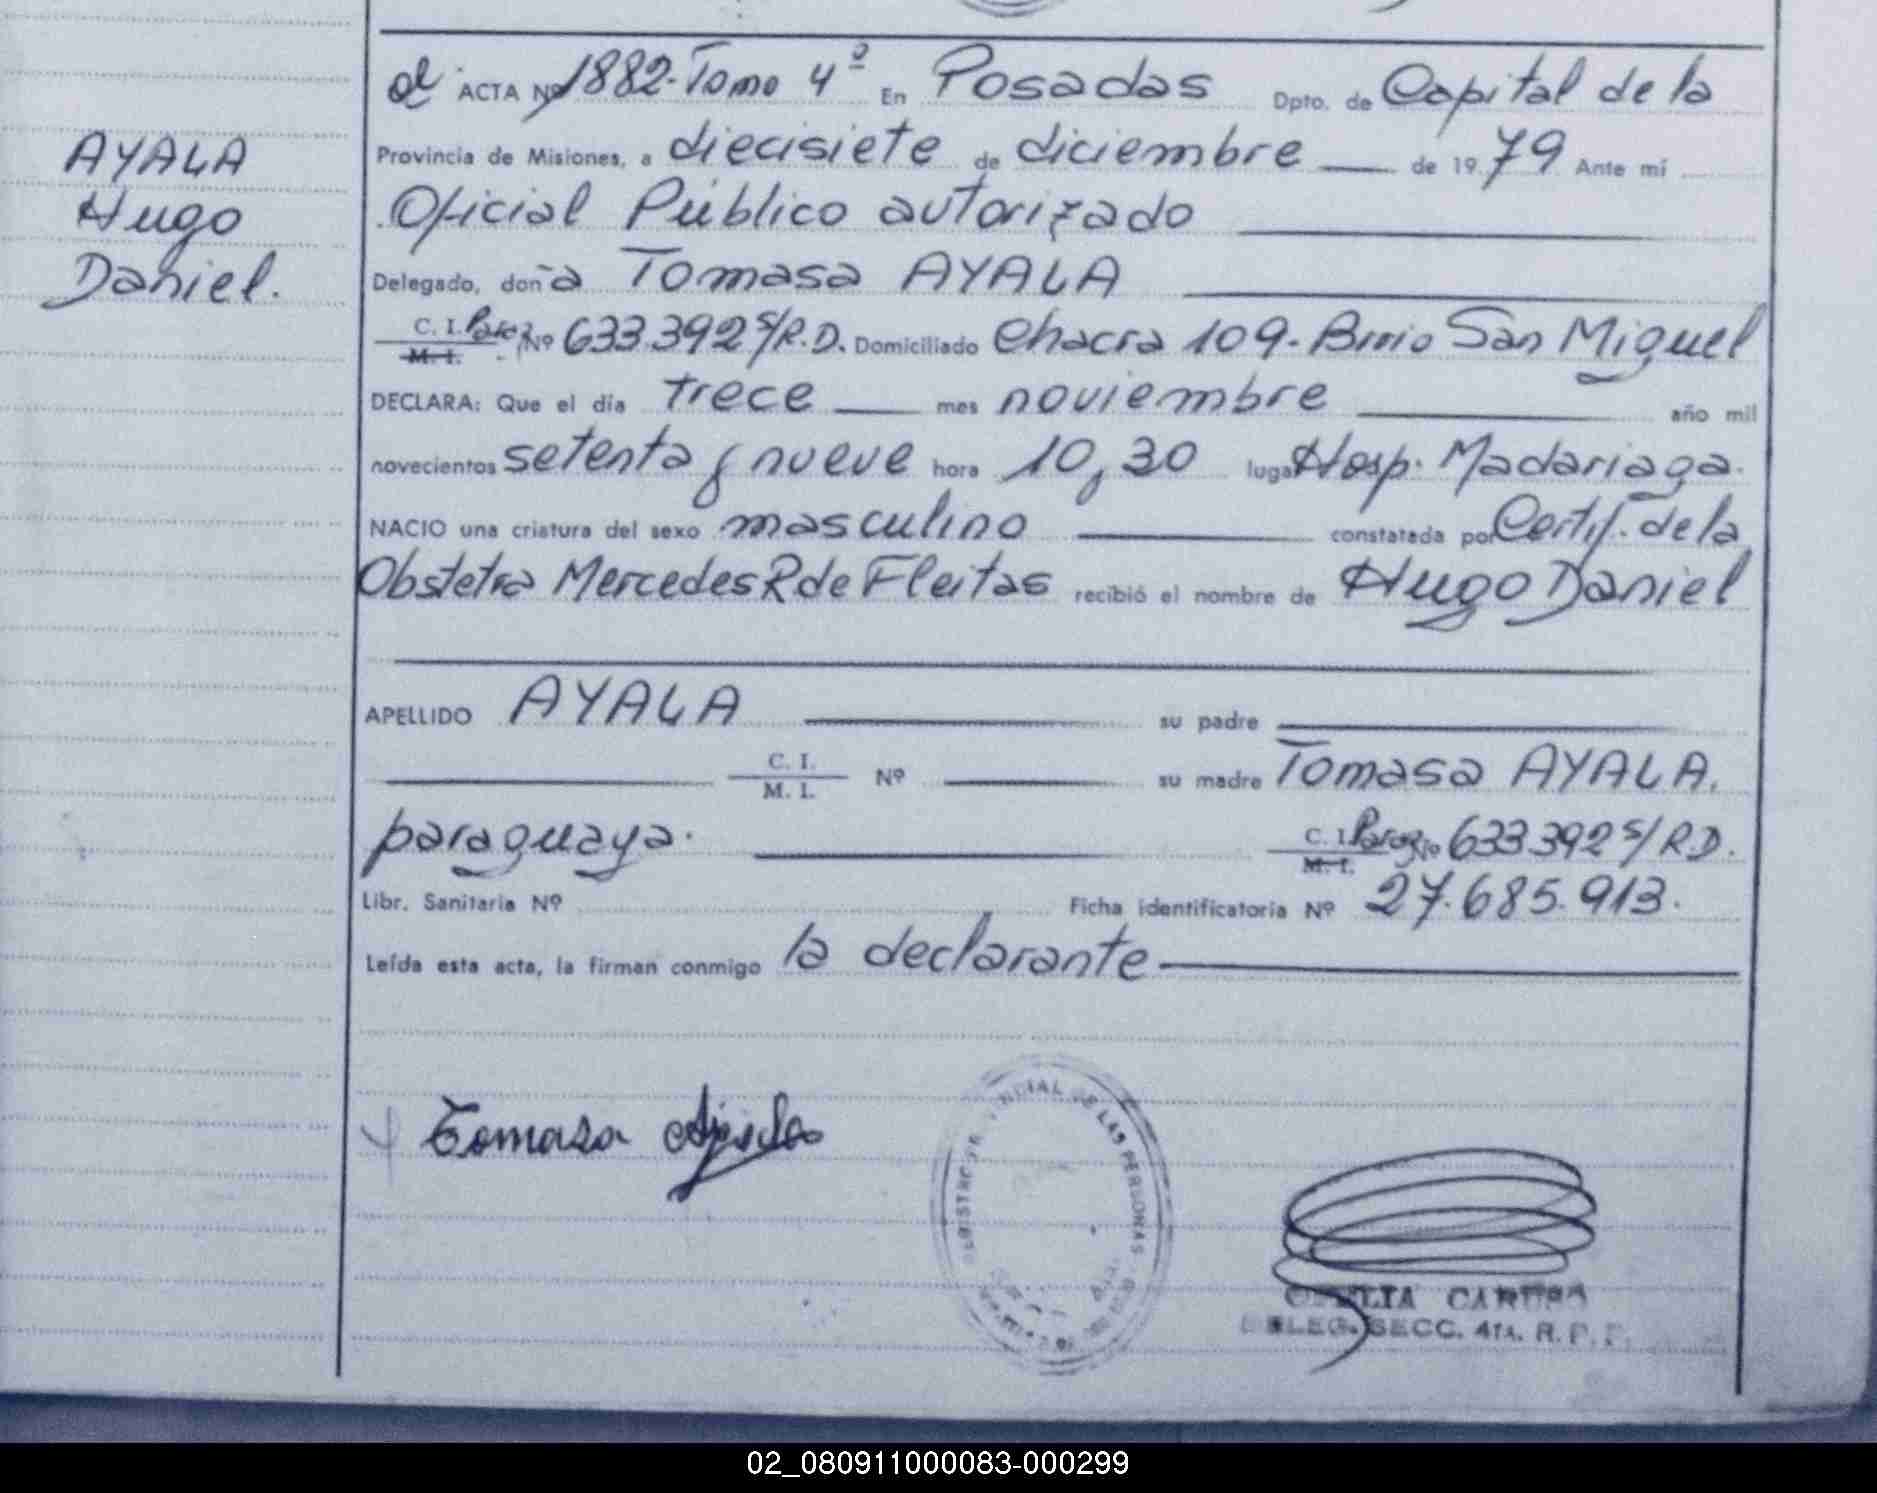 AYALA
Hugo
Daniel.
ACTA Nº 1882- Tomo 4º En Posadas Dpto. de Capital de la
Provincia de Misiones, a diecisiete de diciembre de 1979 Ante mí
Oficial Público autorizado
Delegado, doña Tomasa AYALA
C. I. Parag. Nº 633.392 S/R.D. Domiciliado Chacra 109- Barrio San Miguel
M. I.
DECLARA: Que el día trece mes noviembre año mil
novecientos setenta y nueve hora 10,30 lugar Hosp. Madariaga.
NACIO una criatura del sexo masculino constatada por Certif. de la
Obstetra Mercedes R de Fleitas recibió el nombre de Hugo Daniel
APELLIDO AYALA su padre
C. I.
M. I. Nº su madre Tomasa AYALA.
paraguaya. C. I. Parag. Nº 633.392 S/R.D.
M. I.
Libr. Sanitaria Nº Ficha identificatoria Nº 27.685.913.
Leída esta acta, la firman conmigo la declarante
Tomasa Ayala
DE LAS PERSONAS
CARUSO
DELEG. SECC. 4ta. R. P. P.
02_080911000083-000299